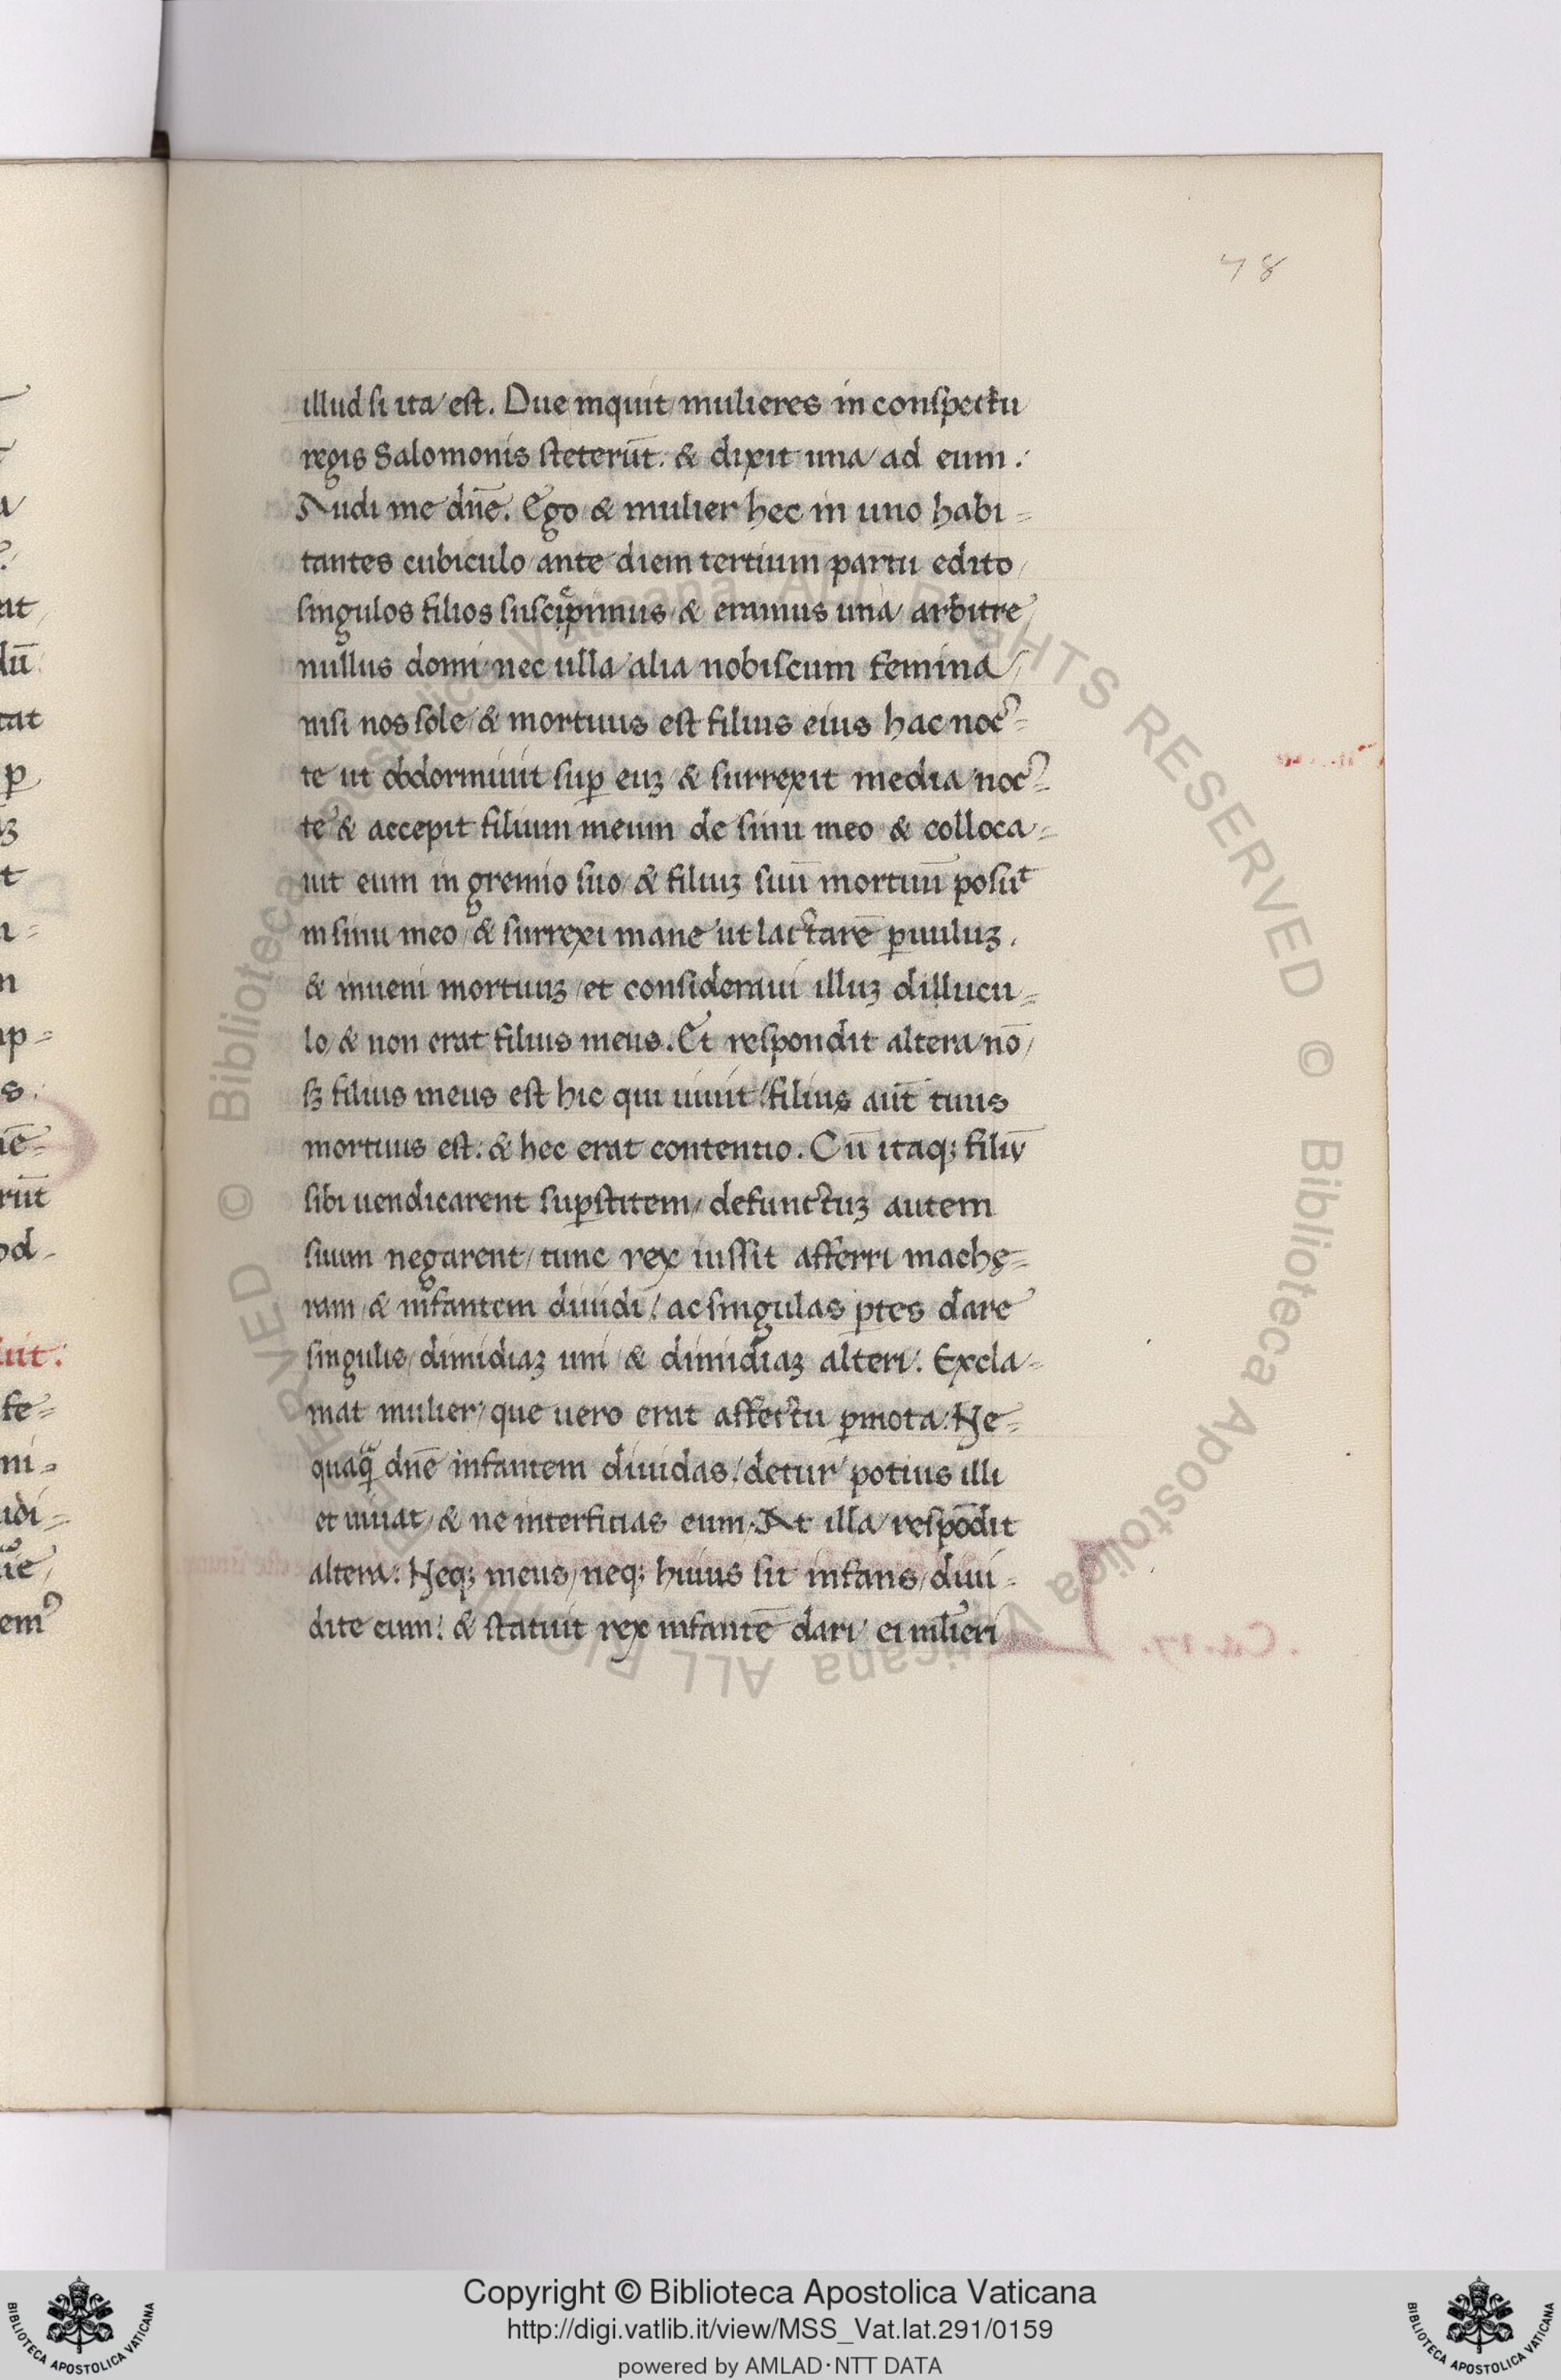 78
illud si ita est. Due inquit mulieres in conspectu
regis Salomonis steterūt. & dixit una ad eum.
Audi me dn̄e. Ego & mulier hec in uno habi=
tantes cubiculo ante diem tertium partu edito
singulos filios suscip̄imus & eramus una arbitre
nullus domi nec ulla alia nobiscum femina
nisi nos sole & mortuus est filius eius hac noc=
te ut obdormiuit suꝑ euꝫ & surrexit media noc=
te & accepit filium meum de sinu meo & colloca=
uit eum in gremio suo & filiuꝫ suū mortuū posuᵗ
in sinu meo & surrexi mane ut lactarē ꝑuuluꝫ.
& inueni mortuuꝫ et consideraui illuꝫ dillucu=
lo & non erat filius meus. Et respondit altera nō
sꝫ filius meus est hic qui uiuit filius aūt tuus
mortuus est: & hec erat contentio. Cū itaqꝫ filiū
sibi uendicarent suꝑstitem/ defunctuꝫ autem
suum negarent/ tunc rex iussit afferri machę=
ram & infantem diuidi/ ac singulas ꝑtes dare
singulis/ dimidiaꝫ uni & dimidiaꝫ alteri. Excla=
mat mulier/ que uero erat affectu ꝑmota: Ne=
quaqᵃ̄ dn̄e infantem diuidas/ detur potius illi
et uiuat/ & ne interficias eum. At illa respōdit
altera: Neqꝫ meus/ neqꝫ huius sit infans/ diui=
dite eum: & statuit rex infantē dari ei mlīeri
Copyright © Biblioteca Apostolica Vaticana
http://digi.vatlib.it/view/MSS_Vat.lat.291/0159
powered by AMLAD·NTT DATA
BIBLIOTECA APOSTOLICA VATICANA
BIBLIOTECA APOSTOLICA VATICANA